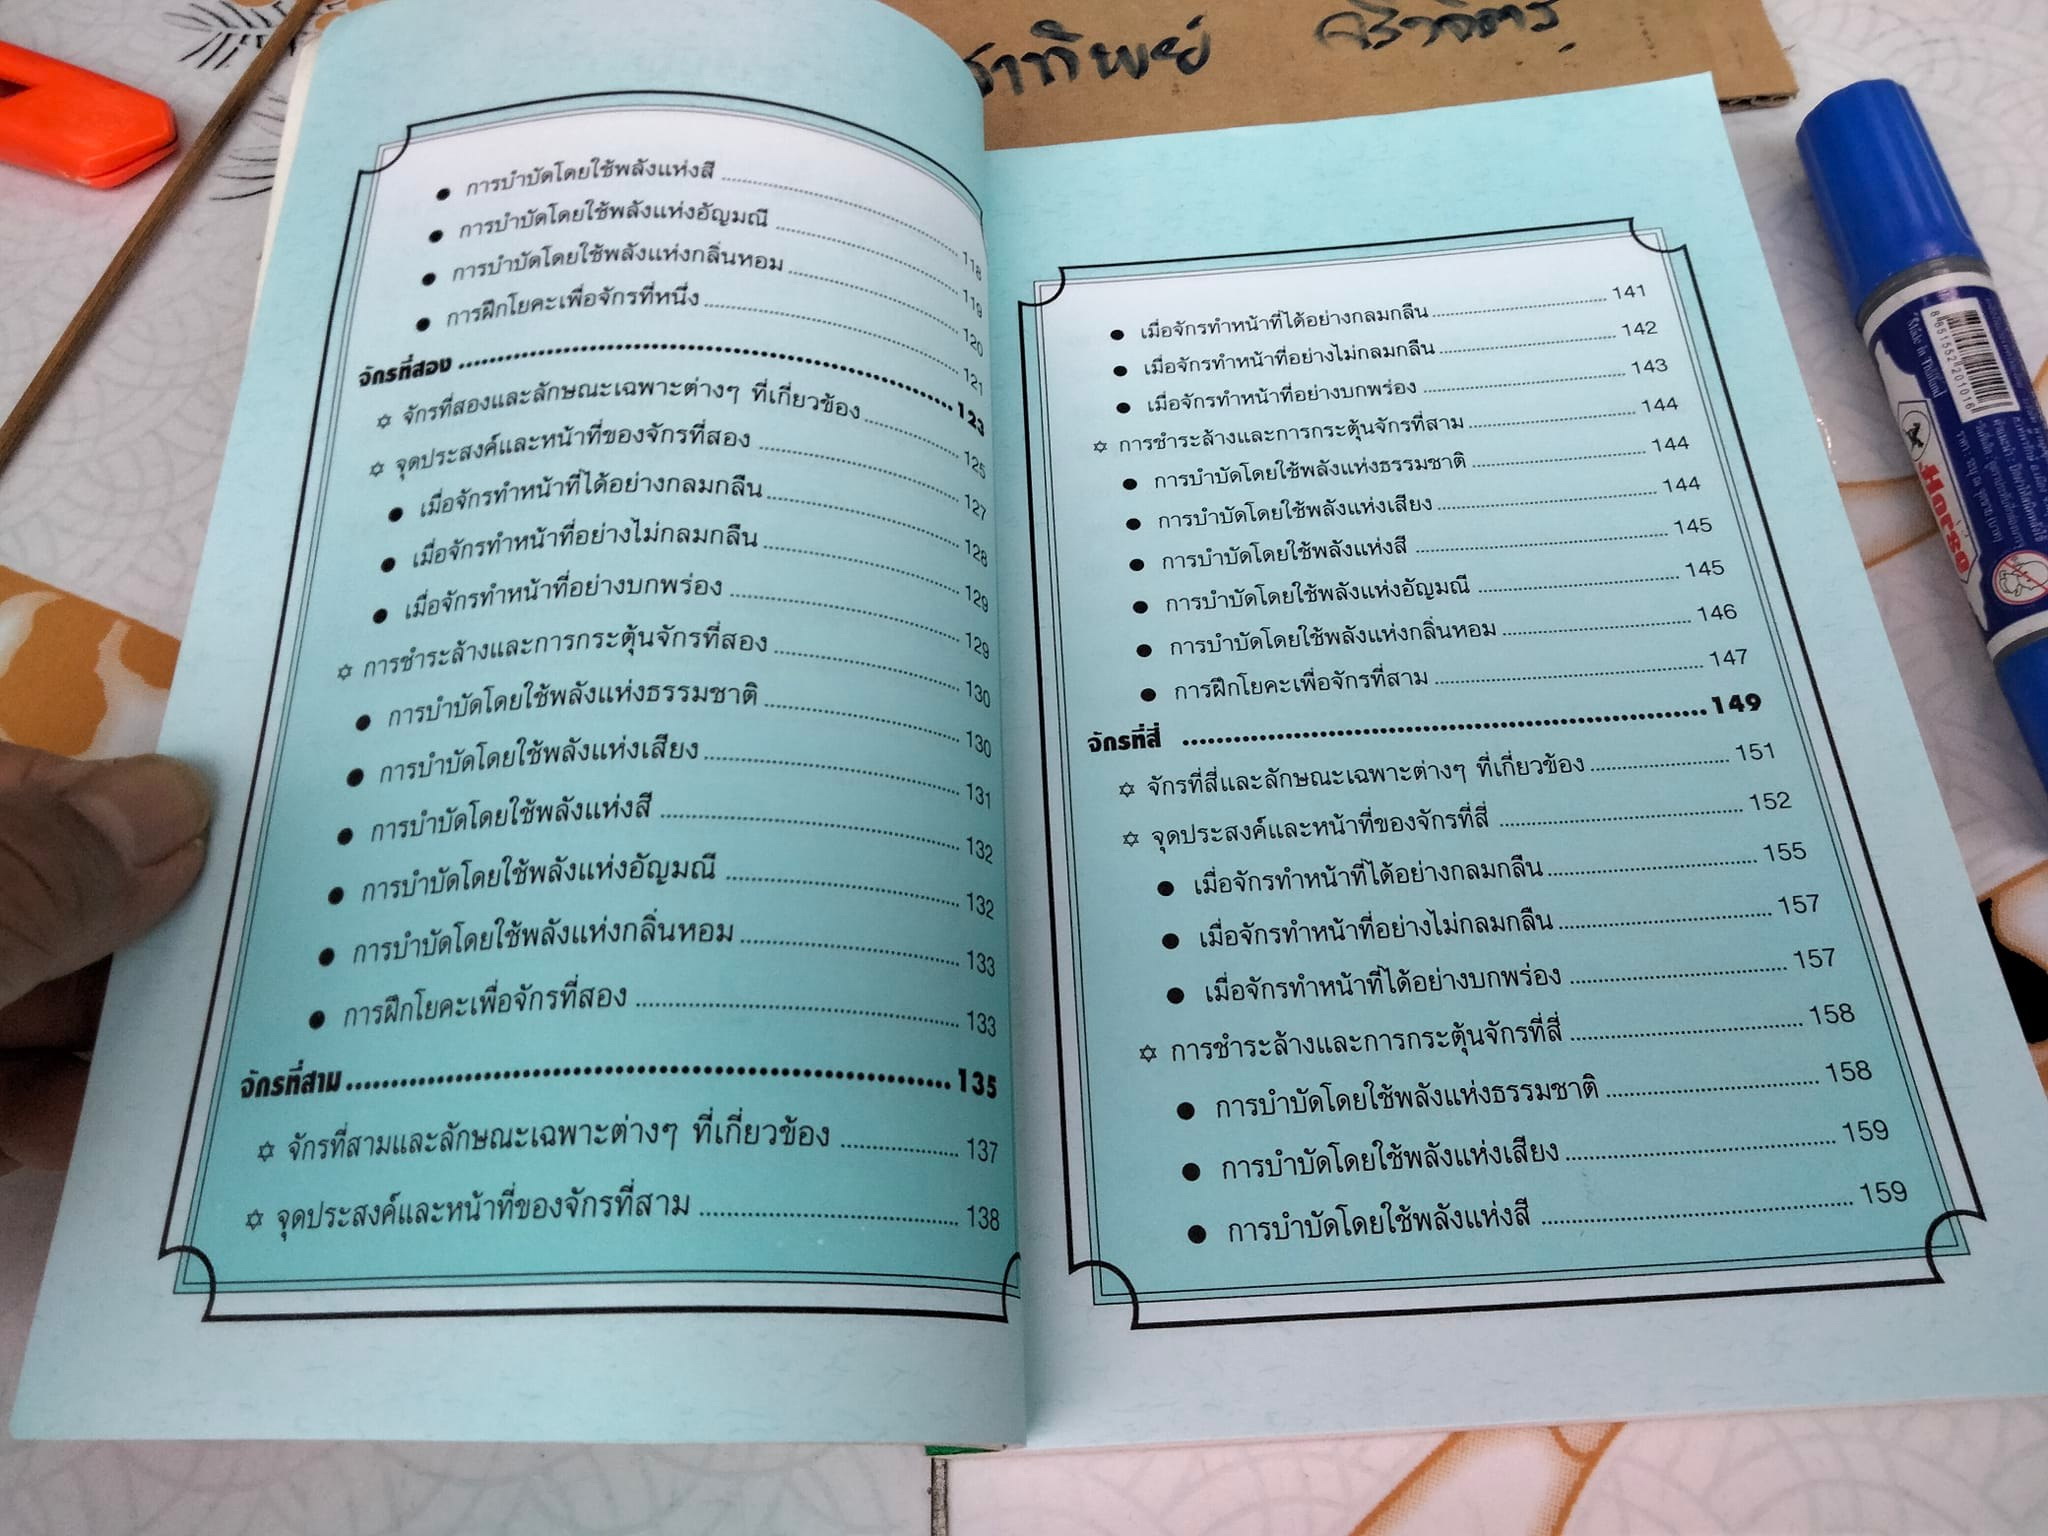 าทิพย์
● การบำบัดโดยใช้พลังแห่งสี .......... 118
● การบำบัดโดยใช้พลังแห่งอัญมณี .......... 119
● การบำบัดโดยใช้พลังแห่งกลิ่นหอม .......... 120
● การฝึกโยคะเพื่อจักรที่หนึ่ง .......... 121
จักรที่สอง .......... 123
✡ จักรที่สองและลักษณะเฉพาะต่างๆ ที่เกี่ยวข้อง .......... 125
✡ จุดประสงค์และหน้าที่ของจักรที่สอง .......... 127
● เมื่อจักรทำหน้าที่ได้อย่างกลมกลืน .......... 128
● เมื่อจักรทำหน้าที่อย่างไม่กลมกลืน .......... 129
● เมื่อจักรทำหน้าที่อย่างบกพร่อง .......... 129
✡ การชำระล้างและการกระตุ้นจักรที่สอง .......... 130
● การบำบัดโดยใช้พลังแห่งธรรมชาติ .......... 130
● การบำบัดโดยใช้พลังแห่งเสียง .......... 131
● การบำบัดโดยใช้พลังแห่งสี .......... 132
● การบำบัดโดยใช้พลังแห่งอัญมณี .......... 132
● การบำบัดโดยใช้พลังแห่งกลิ่นหอม .......... 133
● การฝึกโยคะเพื่อจักรที่สอง .......... 133
จักรที่สาม .......... 135
✡ จักรที่สามและลักษณะเฉพาะต่างๆ ที่เกี่ยวข้อง .......... 137
✡ จุดประสงค์และหน้าที่ของจักรที่สาม .......... 138
● เมื่อจักรทำหน้าที่ได้อย่างกลมกลืน .......... 141
● เมื่อจักรทำหน้าที่อย่างไม่กลมกลืน .......... 142
● เมื่อจักรทำหน้าที่อย่างบกพร่อง .......... 143
✡ การชำระล้างและการกระตุ้นจักรที่สาม .......... 144
● การบำบัดโดยใช้พลังแห่งธรรมชาติ .......... 144
● การบำบัดโดยใช้พลังแห่งเสียง .......... 144
● การบำบัดโดยใช้พลังแห่งสี .......... 145
● การบำบัดโดยใช้พลังแห่งอัญมณี .......... 145
● การบำบัดโดยใช้พลังแห่งกลิ่นหอม .......... 146
● การฝึกโยคะเพื่อจักรที่สาม .......... 147
จักรที่สี่ .......... 149
✡ จักรที่สี่และลักษณะเฉพาะต่างๆ ที่เกี่ยวข้อง .......... 151
✡ จุดประสงค์และหน้าที่ของจักรที่สี่ .......... 152
● เมื่อจักรทำหน้าที่ได้อย่างกลมกลืน .......... 155
● เมื่อจักรทำหน้าที่อย่างไม่กลมกลืน .......... 157
● เมื่อจักรทำหน้าที่ได้อย่างบกพร่อง .......... 157
✡ การชำระล้างและการกระตุ้นจักรที่สี่ .......... 158
● การบำบัดโดยใช้พลังแห่งธรรมชาติ .......... 158
● การบำบัดโดยใช้พลังแห่งเสียง .......... 159
● การบำบัดโดยใช้พลังแห่งสี .......... 159
Made in Thailand
8851552201016
Horse